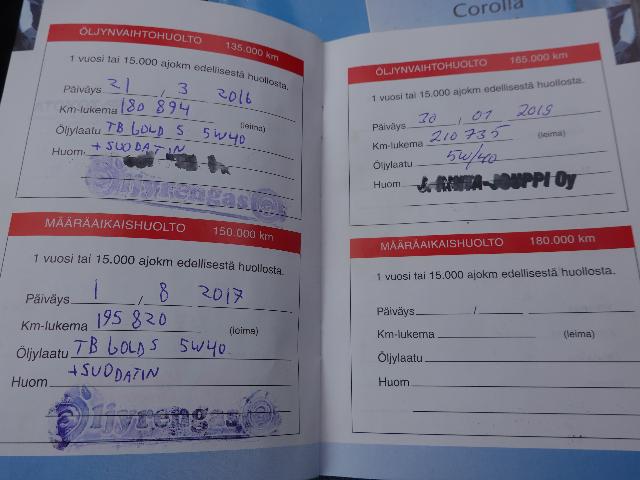 Corolla
ÖLJYNVAIHTOHUOLTO 135.000 km
1 vuosi tai 15.000 ajokm edellisestä huollosta.
Päiväys 21 / 3 2016
Km-lukema 180 894 (leima)
Öljylaatu TB GOLD S 5W40
Huom + SUODATIN
Öljyrengas
MÄÄRÄAIKAISHUOLTO 150.000 km
1 vuosi tai 15.000 ajokm edellisestä huollosta.
Päiväys 1 / 8 2017
Km-lukema 195 820 (leima)
Öljylaatu TB GOLD S 5W40
Huom + SUODATIN
Öljyrengas
ÖLJYNVAIHTOHUOLTO 165.000 km
1 vuosi tai 15.000 ajokm edellisestä huollosta.
Päiväys 30 / 01 2019
Km-lukema 210 735 (leima)
Öljylaatu 5W/40
Huom J. RINTA-JOUPPI Oy
MÄÄRÄAIKAISHUOLTO 180.000 km
1 vuosi tai 15.000 ajokm edellisestä huollosta.
Päiväys /
Km-lukema (leima)
Öljylaatu
Huom